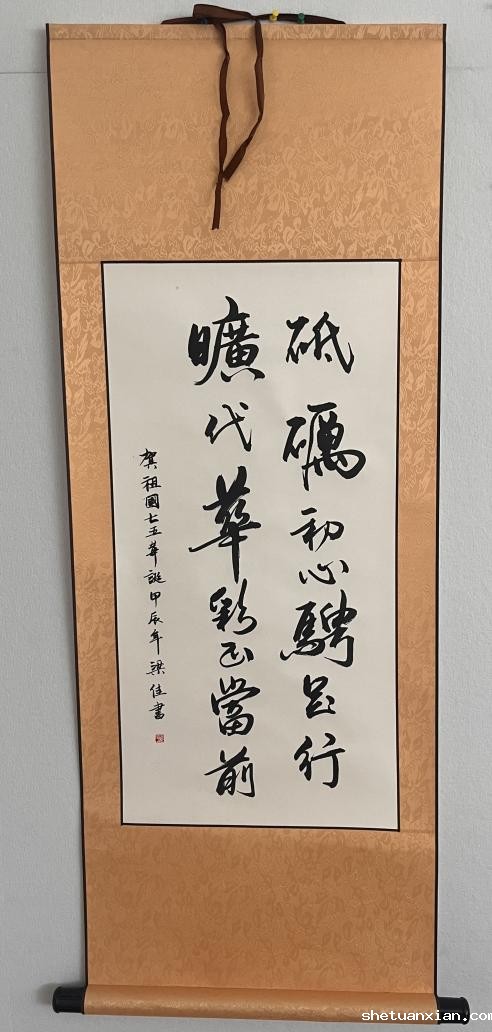 砥礪初心騁足行
曠代華彩正當前
賀祖國七五華誕甲辰年梁佳書
shetuanxian.com